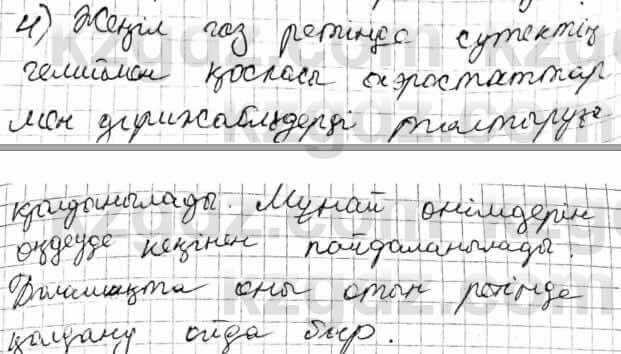 4) Жеңіл газ ретінде сутектің
гелиймен қоспасы аэростаттар
мен дирижабльдерді толтыруға
қолданылады. Мұнай өнімдерін
өңдеуде кеңінен пайдаланылады.
Болашақта оны отын ретінде
қолдану ойда бар.